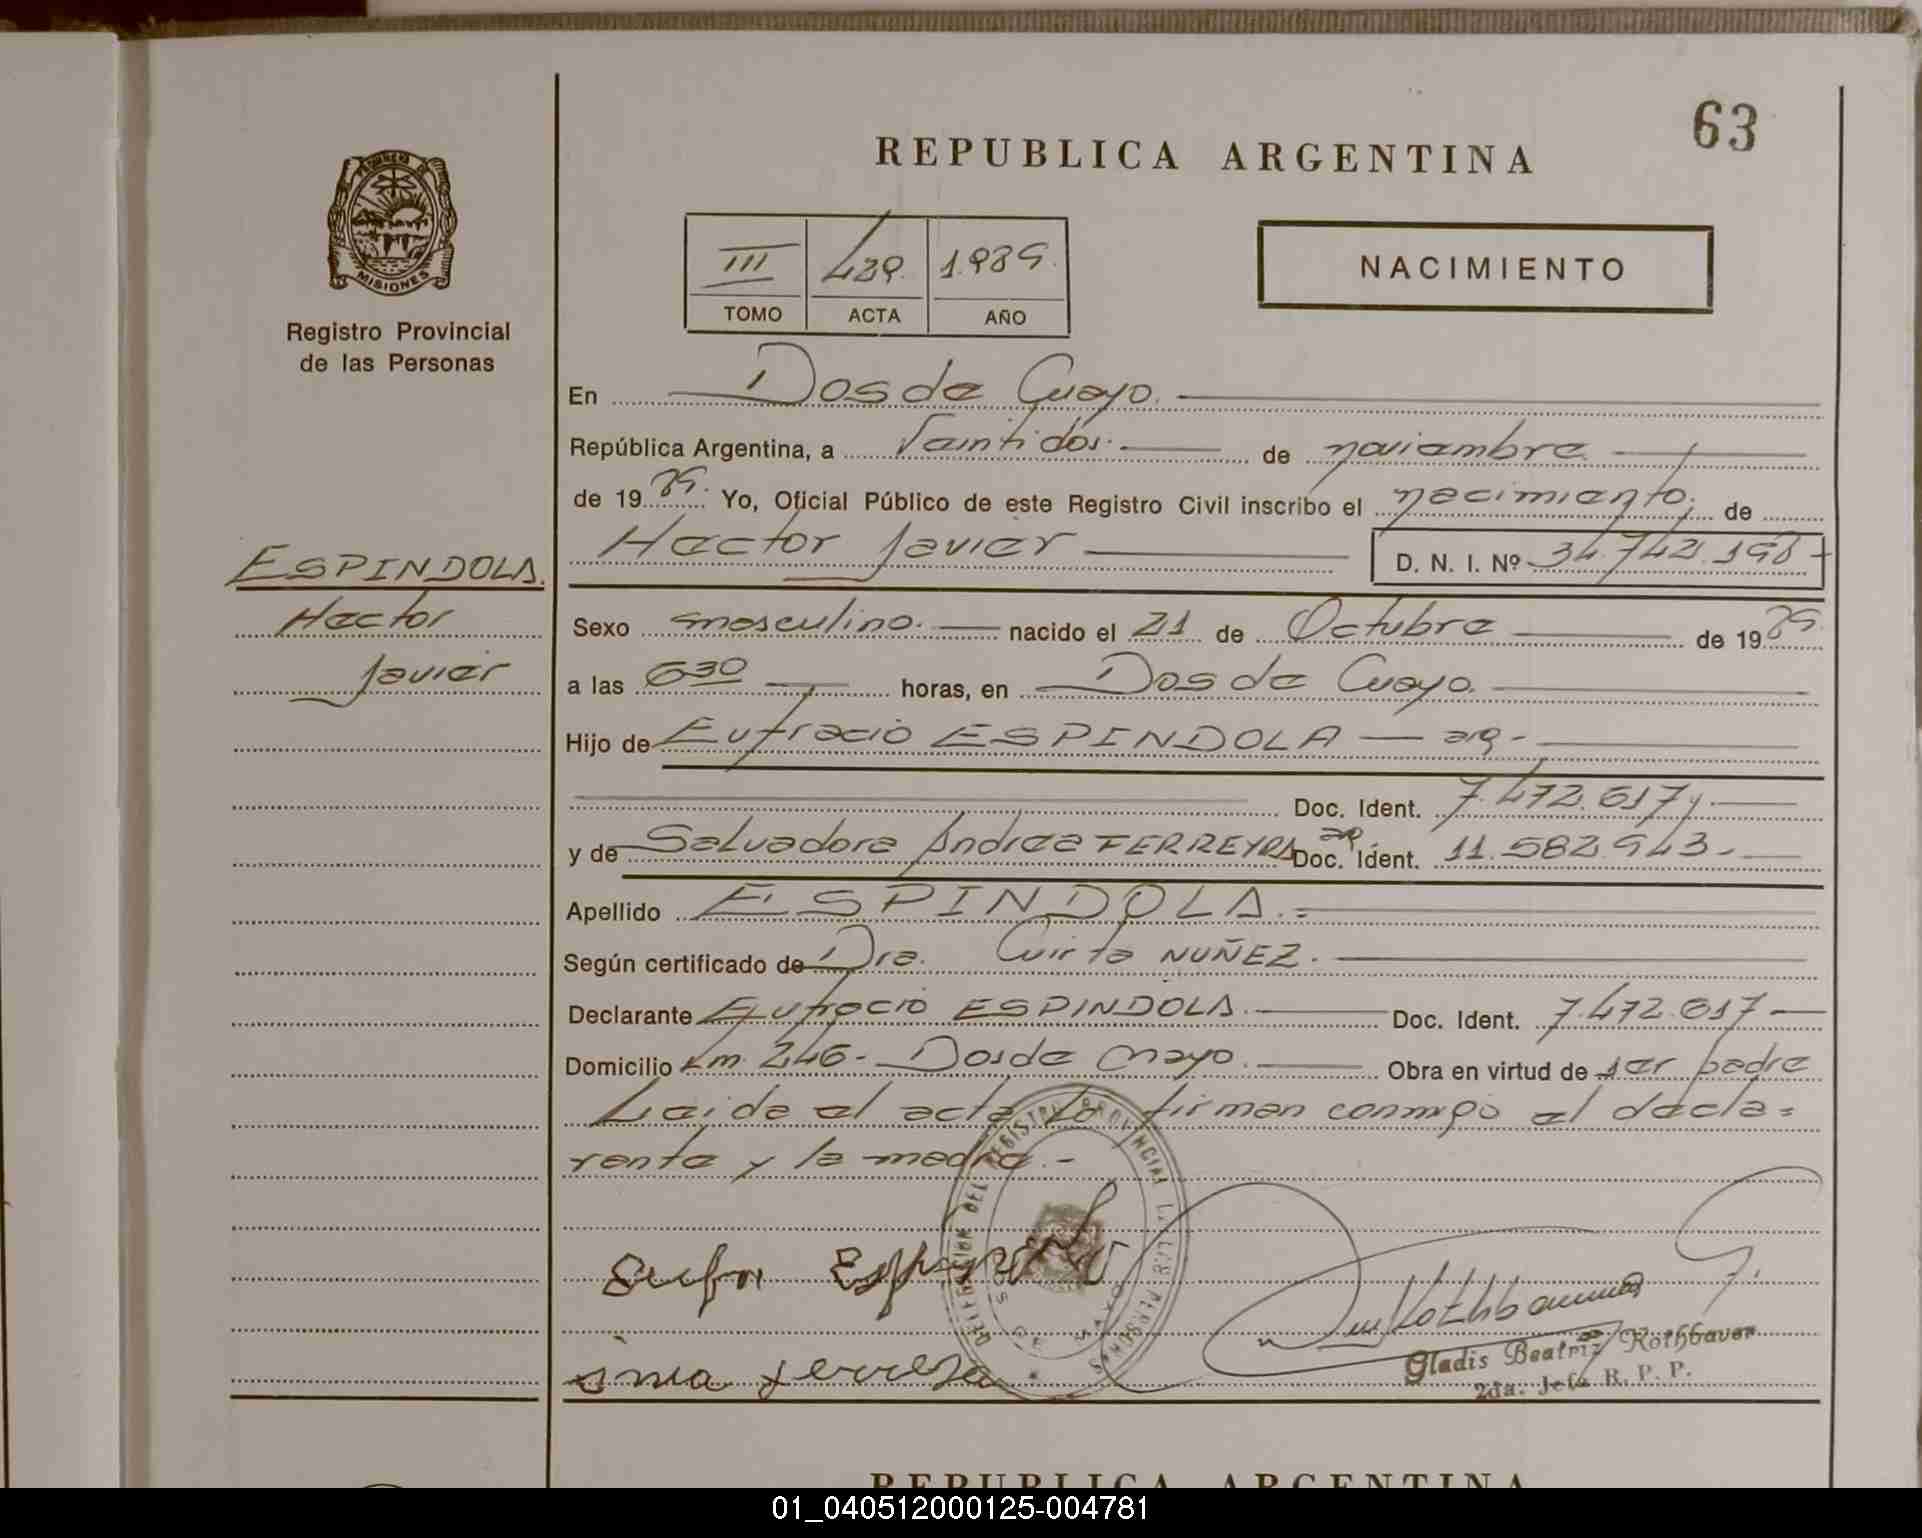 63
REPUBLICA ARGENTINA
PROVINCIA DE
MISIONES
Registro Provincial
de las Personas
III 439. 1989.
TOMO ACTA AÑO
NACIMIENTO
En Dos de Mayo.
República Argentina, a Veintidós. de noviembre
de 1989. Yo, Oficial Público de este Registro Civil inscribo el nacimiento, de
Hector Javier D. N. I. Nº 34.742.198-
ESPINDOLA.
Hector
Javier
Sexo masculino. nacido el 21 de Octubre de 1989.
a las 6 30 horas, en Dos de Mayo.
Hijo de Eufracio ESPINDOLA — arg-
Doc. Ident. 7.472.617 y
y de Salvadora Andrea FERREYRA Doc. Ident. 11.582.943-
Apellido ESPINDOLA.
Según certificado de Dra. Mirta NUÑEZ.
Declarante Eufracio ESPINDOLA. Doc. Ident. 7.472.617-
Domicilio Km. 246- Dos de Mayo. Obra en virtud de ser padre
Leida el acta la firman conmigo el decla=
rante y la madre.-
DELEGACION DEL REGISTRO PROVINCIAL DE LAS PERSONAS
DOS DE MAYO
Gladis Beatriz Rothbauer
2da. Jefa R. P. P.
REPUBLICA ARGENTINA
01_040512000125-004781